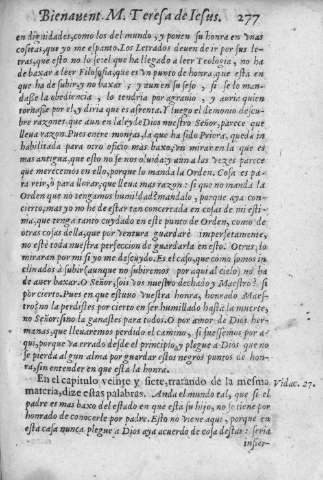 Bienauent. M. Teresa de Iesus. 277
en dignidades, como los del mundo, y ponen su honra en vnas
cositas, que yo me espanto. Los Letrados deuen de ir por sus le-
tras, que esto no lo se: el que ha llegado a leer Teologia, no ha
de baxar a leer Filosofia, que es vn punto de honra, que está en
que ha de subir, y no baxar; y aun en su seso, si se lo man-
dasse la obediencia, lo tendria por agrauio, y auria quien
tornasse por el, y diria que es afrenta. Y luego el demonio descu-
bre razones, que aun en la ley de Dios nuestro Señor, parece que
lleua razon. Pues entre monjas, la que ha sido Priora, queda in
habilitada para otro oficio mas baxo, vn mirar en la que es
mas antigua, que esto no se nos oluida, y aun a las vezes parece
que merecemos en ello, porque lo manda la Orden. Cosa es pa
ra reir, ò para llorar, que lleua mas razon: si que no manda la
Orden que no tengamos humildad: mandalo, porque aya con-
cierto, mas yo no he de estar tan concertada en cosas de mi esti-
ma, que tenga tanto cuydado en este punto de Orden, como de
otras cosas della, que por ventura guardaré imperfetamente,
no esté toda nuestra perfeccion de guardarla en esto. Otras, lo
miraran por mi si yo me descuydo. Es el caso, que como somos in
clinados à subir (aunque no subiremos por aqui al cielo) no ha
de auer baxar. O Señor, sois vos nuestro dechado y Maestro? si
por cierto. Pues en que estuuo vuestra honra, honrado Maes-
tro, no la perdistes por cierto en ser humillado hasta la muerte,
no Señor, sino la ganastes para todos. O por amor de Dios her-
manas, que lleuaremos perdido el camino, si fuessemos por a-
qui, porque va errado desde el principio, y plegue a Dios que no
se pierda algun alma por guardar estos negros puntos de hon-
ra, sin entender en que está la honra.
En el capitulo veinte y siete, tratando de la mesma Vida c. 27.
materia, dize estas palabras. Anda el mundo tal, que si el
padre es mas baxo del estado en que està su hijo, no se tiene por
honrado de conocerle por padre. Esto no viene aqui, porque en
esta casa nunca plegue a Dios aya acuerdo de cosa destas: seria
infier-